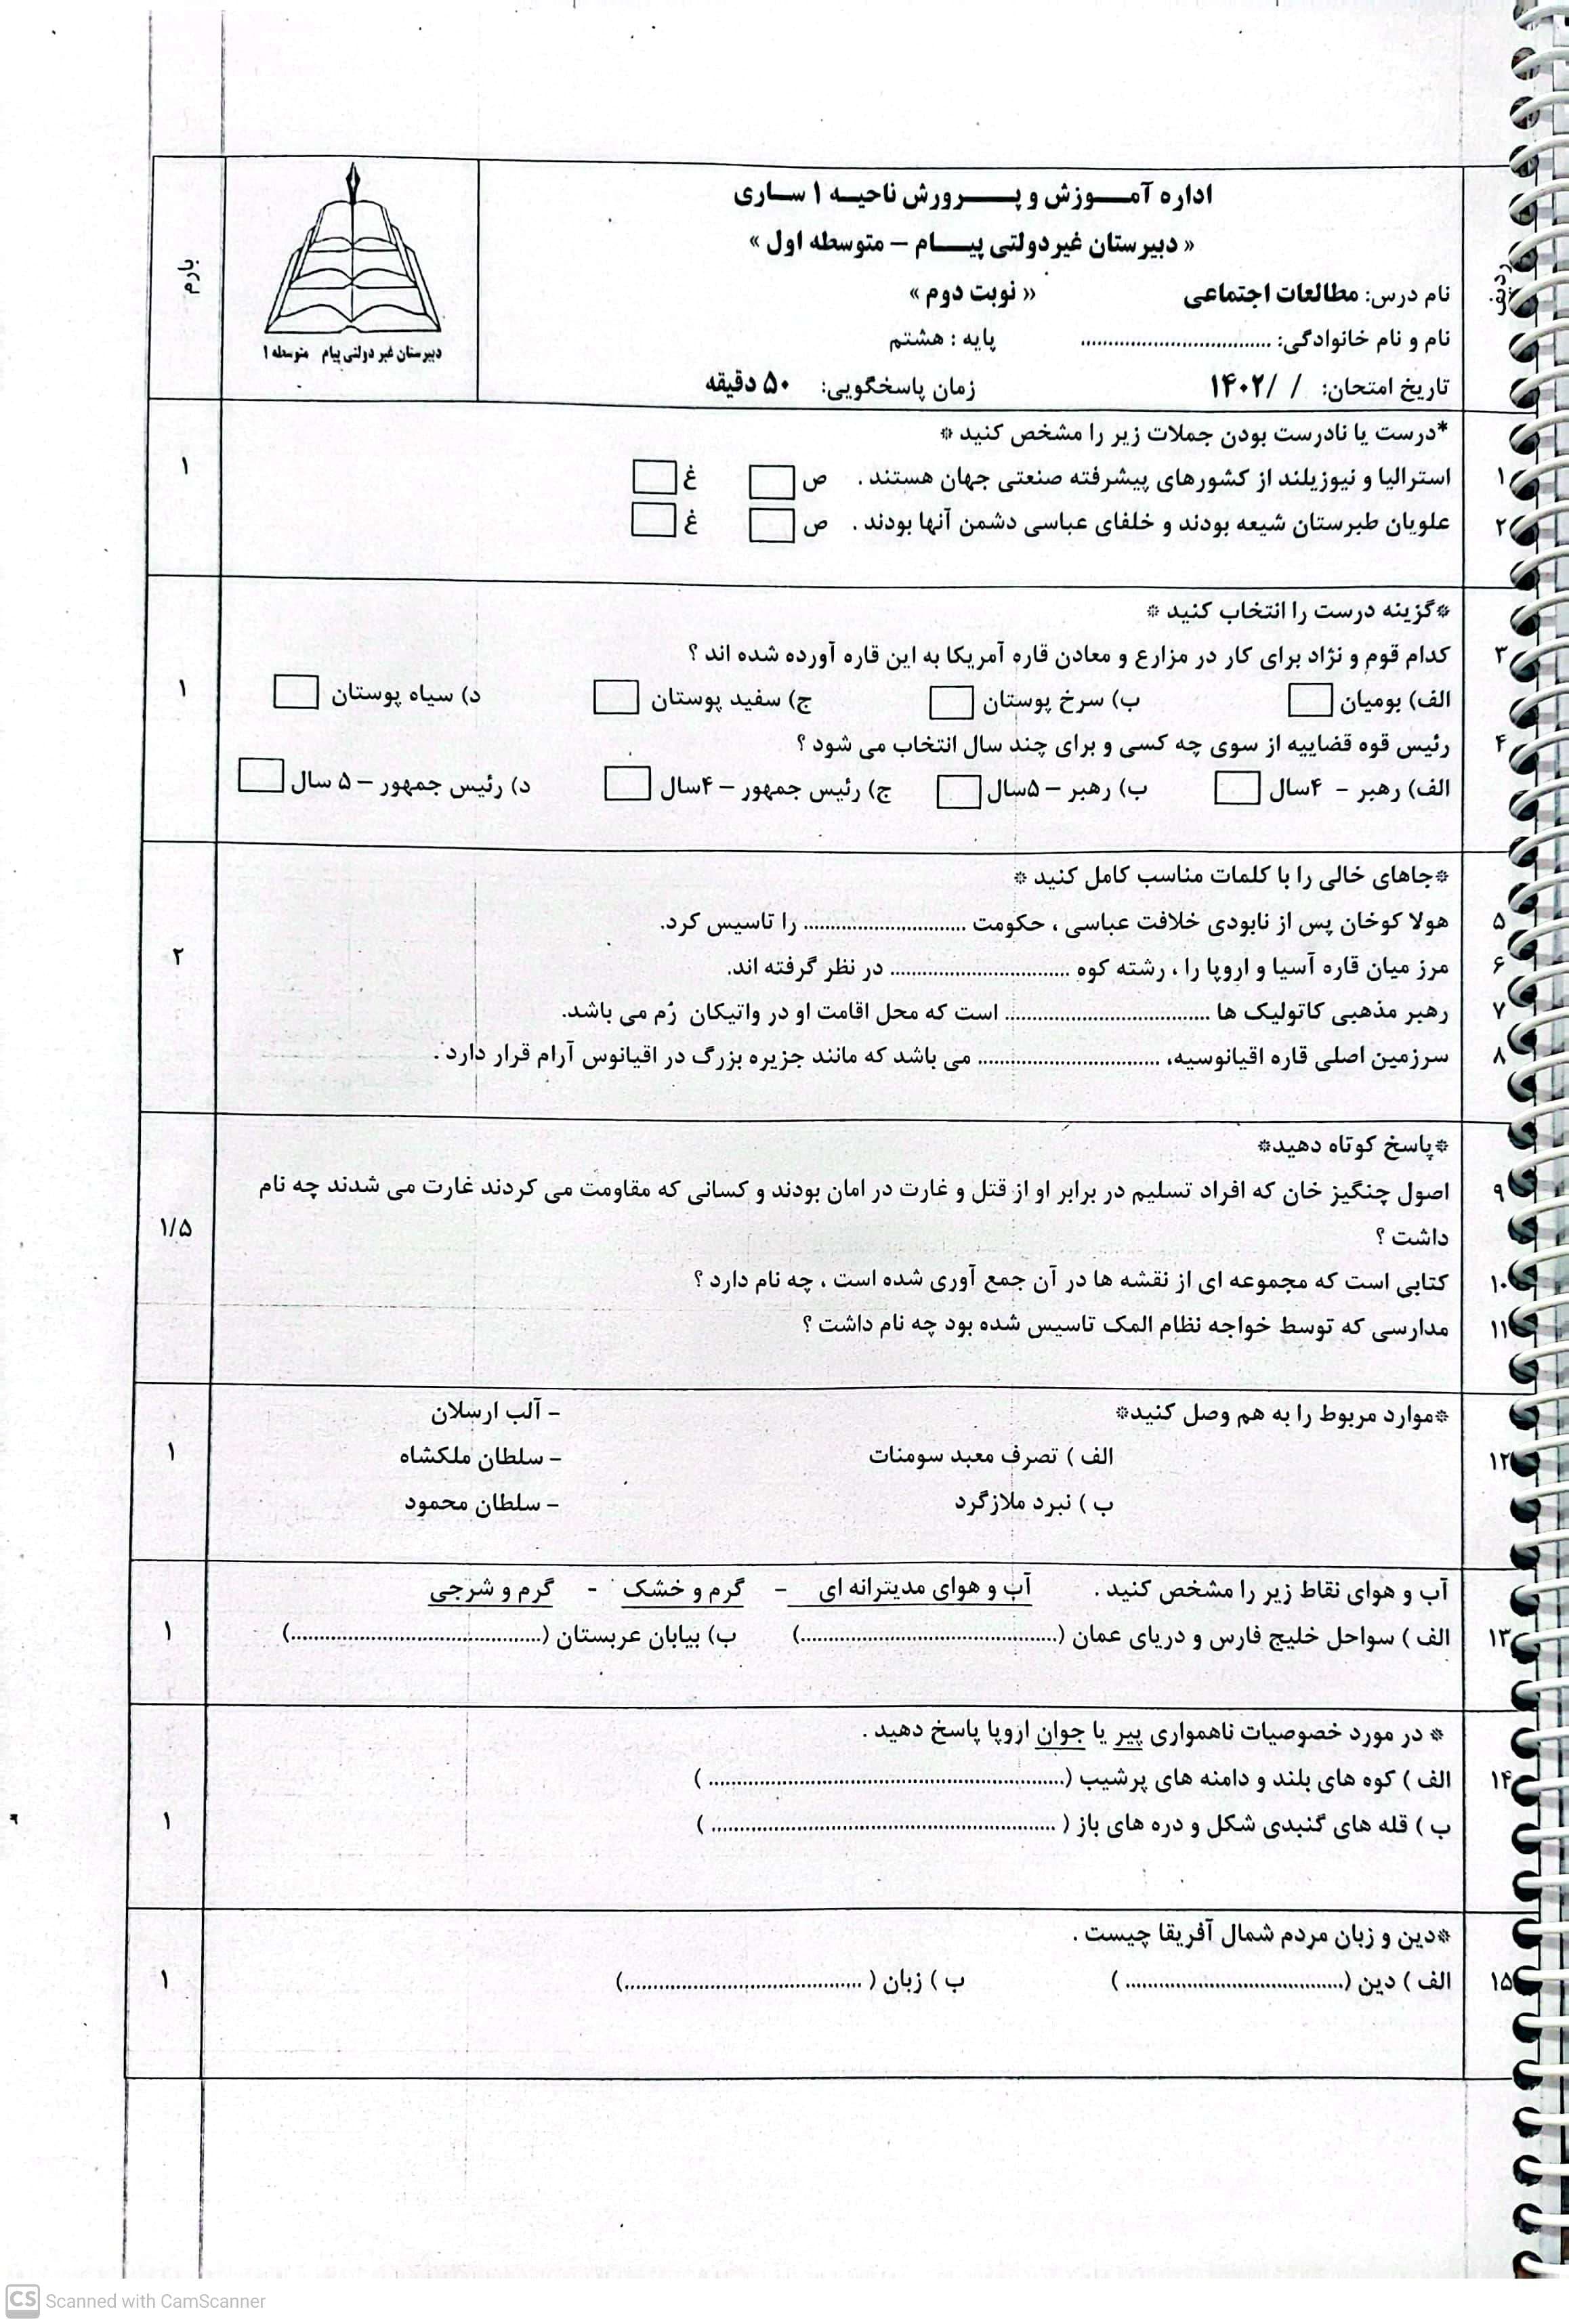 ردیف
اداره آمـــوزش و پـــــرورش ناحیـه ۱ ســاری
« دبیرستان غیردولتی پیـــام – متوسطه اول »
نام درس: مطالعات اجتماعی « نوبت دوم »
نام و نام خانوادگی: .................................. پایه : هشتم
تاریخ امتحان: / /۱۴۰۲ زمان پاسخگویی: ۵۰ دقیقه
دبیرستان غیر دولتی پیام متوسطه ۱
بارم
*درست یا نادرست بودن جملات زیر را مشخص کنید *
۱ استرالیا و نیوزیلند از کشورهای پیشرفته صنعتی جهان هستند . ص غ ۱
۲ علویان طبرستان شیعه بودند و خلفای عباسی دشمن آنها بودند . ص غ
*گزینه درست را انتخاب کنید *
۳ کدام قوم و نژاد برای کار در مزارع و معادن قاره آمریکا به این قاره آورده شده اند ؟
الف) بومیان ب) سرخ پوستان ج) سفید پوستان د) سیاه پوستان ۱
۴ رئیس قوه قضاییه از سوی چه کسی و برای چند سال انتخاب می شود ؟
الف) رهبر – ۴سال ب) رهبر – ۵سال ج) رئیس جمهور – ۴سال د) رئیس جمهور – ۵ سال
*جاهای خالی را با کلمات مناسب کامل کنید *
۵ هولا کوخان پس از نابودی خلافت عباسی ، حکومت ............................. را تاسیس کرد.
۶ مرز میان قاره آسیا و اروپا را ، رشته کوه ................................ در نظر گرفته اند. ۲
۷ رهبر مذهبی کاتولیک ها .................................... است که محل اقامت او در واتیکان رُم می باشد.
۸ سرزمین اصلی قاره اقیانوسیه، ................................ می باشد که مانند جزیره بزرگ در اقیانوس آرام قرار دارد .
*پاسخ کوتاه دهید*
۹ اصول چنگیز خان که افراد تسلیم در برابر او از قتل و غارت در امان بودند و کسانی که مقاومت می کردند غارت می شدند چه نام
داشت ؟ ۱/۵
۱۰ کتابی است که مجموعه ای از نقشه ها در آن جمع آوری شده است ، چه نام دارد ؟
۱۱ مدارسی که توسط خواجه نظام المک تاسیس شده بود چه نام داشت ؟
*موارد مربوط را به هم وصل کنید* – آلب ارسلان
۱۲ الف ) تصرف معبد سومنات – سلطان ملکشاه ۱
ب ) نبرد ملازگرد – سلطان محمود
آب و هوای نقاط زیر را مشخص کنید . آب و هوای مدیترانه ای – گرم و خشک - گرم و شرجی
۱۳ الف ) سواحل خلیج فارس و دریای عمان (..............................................) ب) بیابان عربستان (.............................................) ۱
* در مورد خصوصیات ناهمواری پیر یا جوان اروپا پاسخ دهید .
۱۴ الف ) کوه های بلند و دامنه های پرشیب (................................................................ )
ب ) قله های گنبدی شکل و دره های باز ( .............................................................. ) ۱
*دین و زبان مردم شمال آفریقا چیست .
۱۵ الف ) دین (....................................... ) ب ) زبان ( ..........................................) ۱
CS Scanned with CamScanner